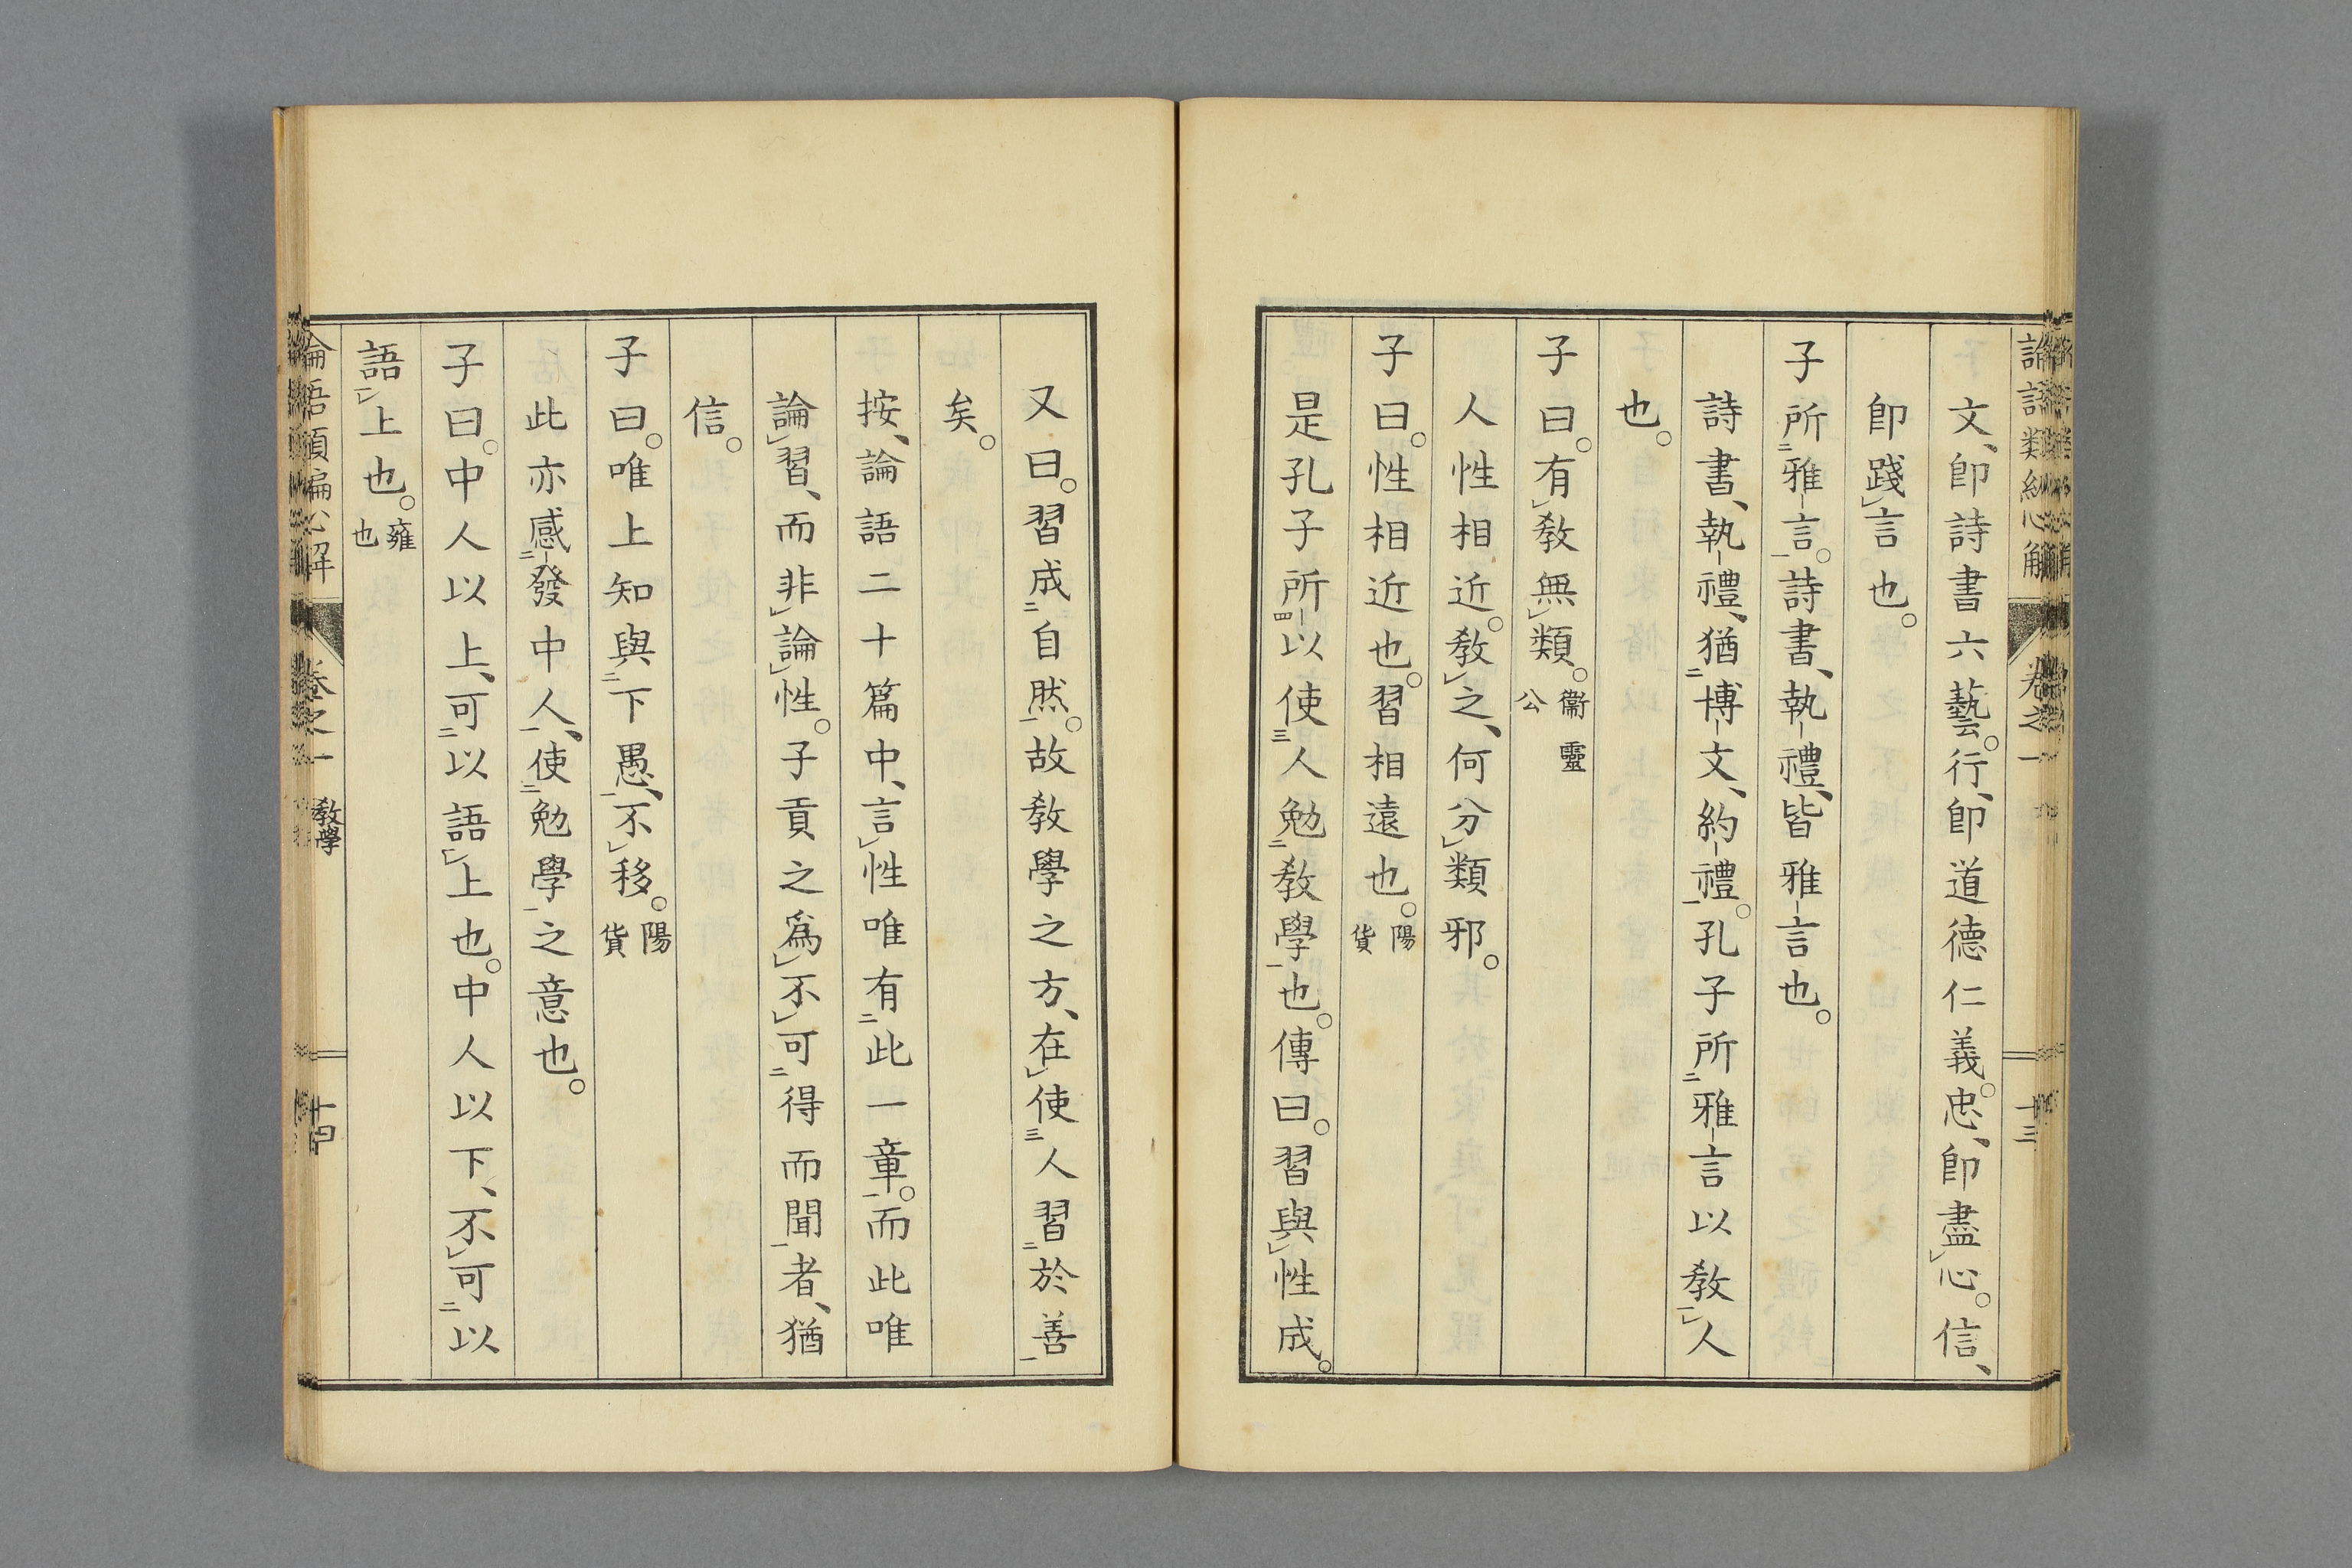 文、卽詩書六藝。行、卽道德仁義。忠、卽盡心。信、
卽踐言也。
子所雅言。詩書、執禮、皆雅言也。
詩書、執禮、猶博文、約禮。孔子所雅言以敎人
也。
子曰。有敎無類。衞靈公
人性相近。敎之、何分類邪。
子曰。性相近也。習相遠也。陽貨
是孔子所以使人勉敎學也。傳曰。習與性成。
又曰。習成自然。故敎學之方、在使人習於善
矣。
按、論語二十篇中、言性唯有此一章。而此唯
論習、而非論性。子貢之爲不可得而聞者、猶
信。
子曰。唯上知與下愚、不移。陽貨
此亦感發中人、使勉學之意也。
子曰。中人以上、可以語上也。中人以下、不可以
語上也。雍也
卷之一
敎學
十四
卷之一
十三